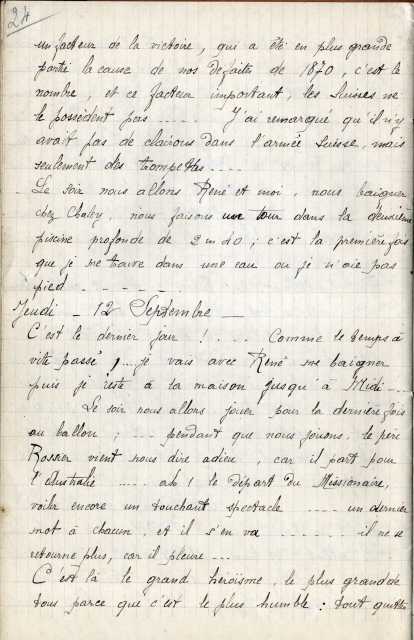 24
un facteur de la victoire, qui a été en plus grande
partie la cause de nos défaites de 1870, c'est le
nombre, et ce facteur important, les Suisses ne
le possèdent pas ..... J'ai remarqué qu'il n'y
avait pas de clairons dans l'armée Suisse, mais
seulement des trompettes ....
Le soir nous allons René et moi, nous baigner
chez Chaley, nous faisons un tour dans la deuxième
piscine profonde de 2m40; c'est la première fois
que je me trouve dans une eau ou je n'aie pas
pied - - - - -
Jeudi - 12 Septembre -
C'est le dernier jour ! ... Comme le temps a
vite passé ! ... je vais avec René me baigner
puis je reste à la maison jusqu'à Midi ...
Le soir nous allons jouer pour la dernière fois
au ballon; .... pendant que nous jouons, le père
Rossier vient nous dire adieu, car il part pour
l'Australie ..... ah ! le départ du Missionnaire,
voilà encore un touchant spectacle ..... un dernier
mot à chacun, et il s'en va ...... il ne se
retourne plus, car il pleure ....
C'est là le grand héroïsme, le plus grand de
tous parce que c'est le plus humble : tout quitter